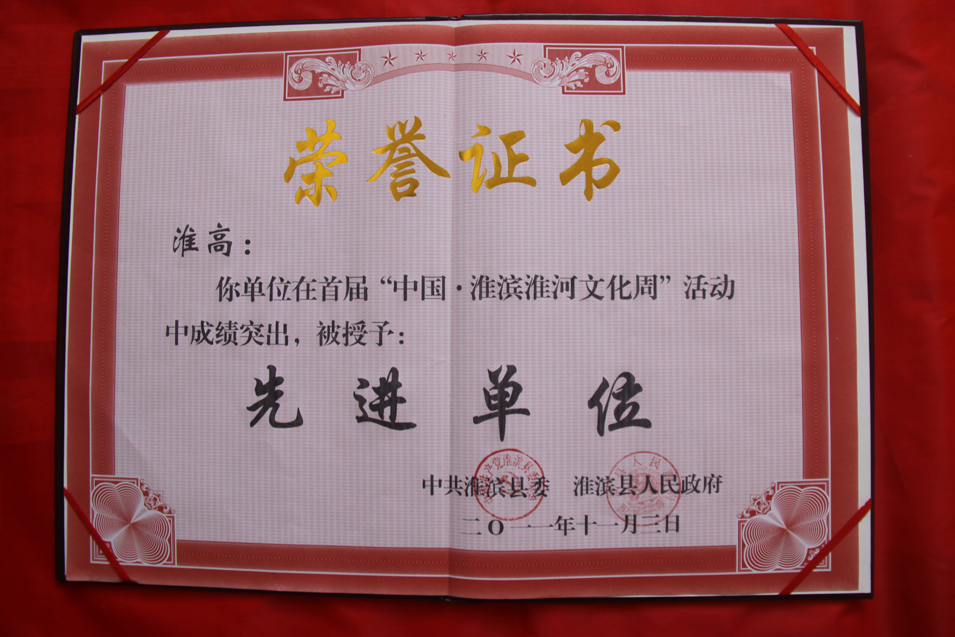 荣誉证书
淮高：
你单位在首届“中国·淮滨淮河文化周”活动
中成绩突出，被授予：
先进单位
中共淮滨县委 淮滨县人民政府
二〇一一年十一月三日